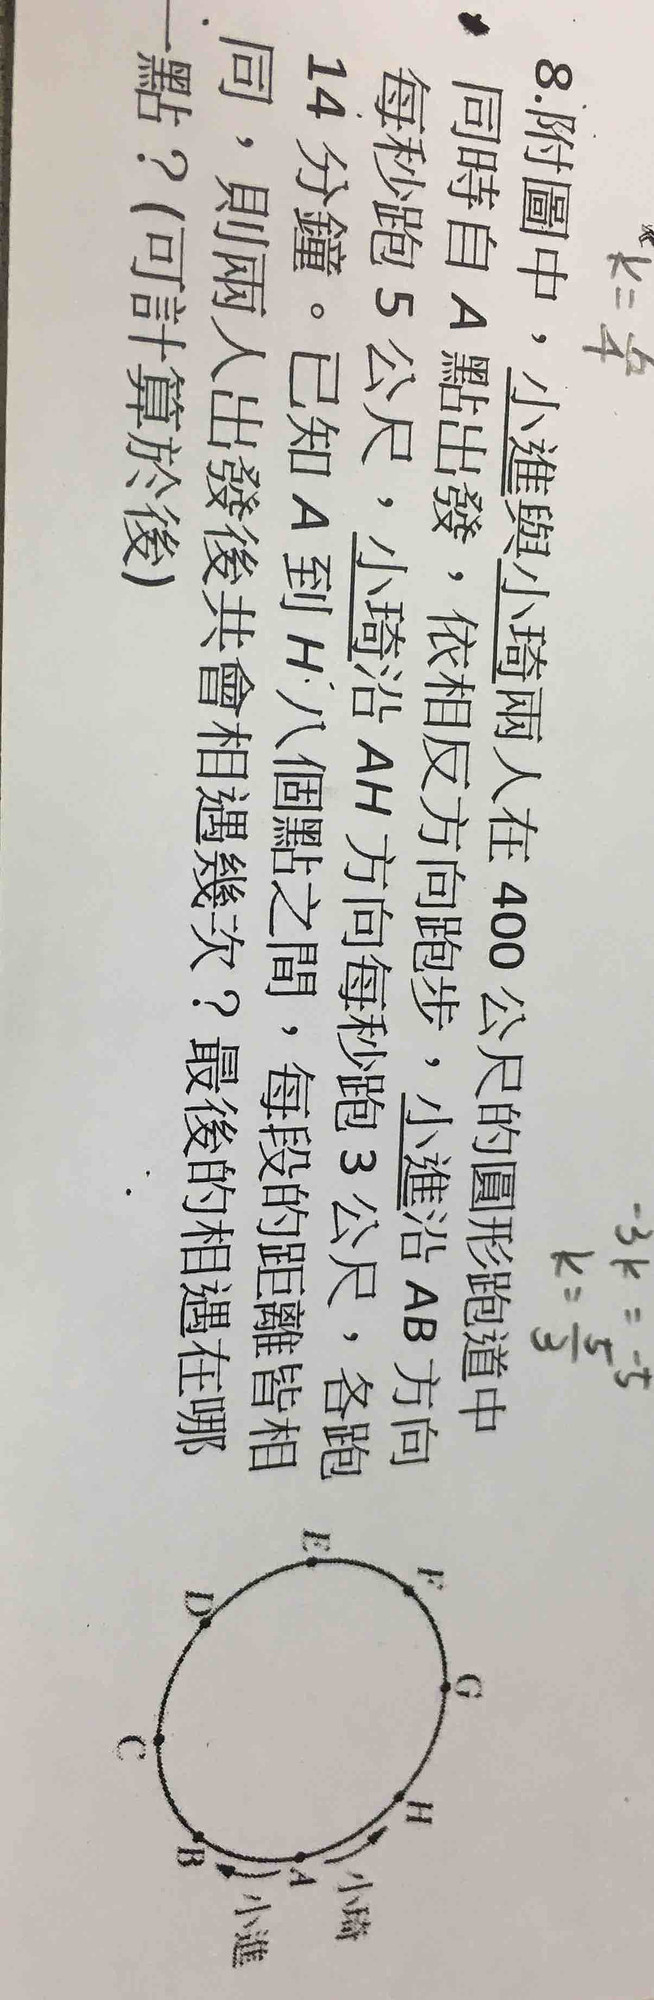 8.附圖中，小進與小琦兩人在 400 公尺的圓形跑道中
同時自 A 點出發，依相反方向跑步，小進沿 AB 方向
每秒跑 5 公尺，小琦沿 AH 方向每秒跑 3 公尺，各跑
14 分鐘。已知 A 到 H 八個點之間，每段的距離皆相
同，則兩人出發後共會相遇幾次？最後的相遇在哪
一點？(可計算於後)
k=
-3k=-5
k=5/3
E
F
G
D
H
C
B
A
小琦
小進